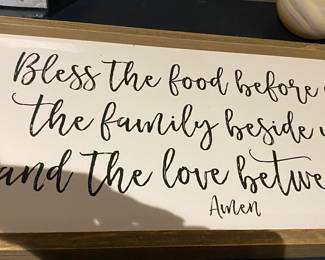 Bless the food before
the family beside
and the love
Amen